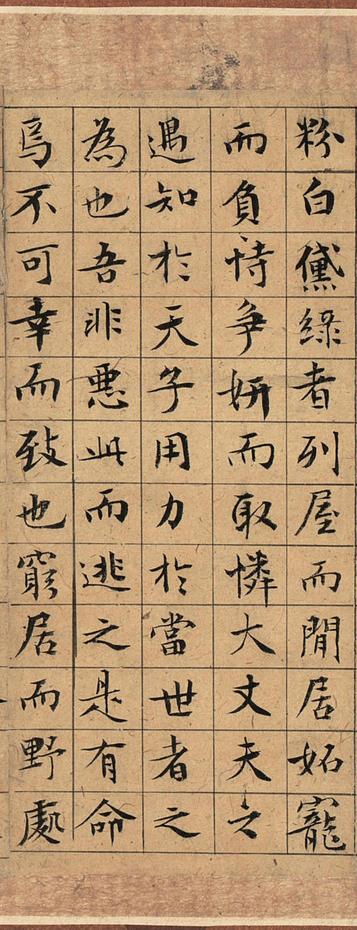 粉白黛綠者列屋而閒居妬寵
而負恃爭妍而取憐大丈夫之
遇知於天子用力於當世者之
為也吾非悪此而逃之是有命
焉不可幸而致也窮居而野處